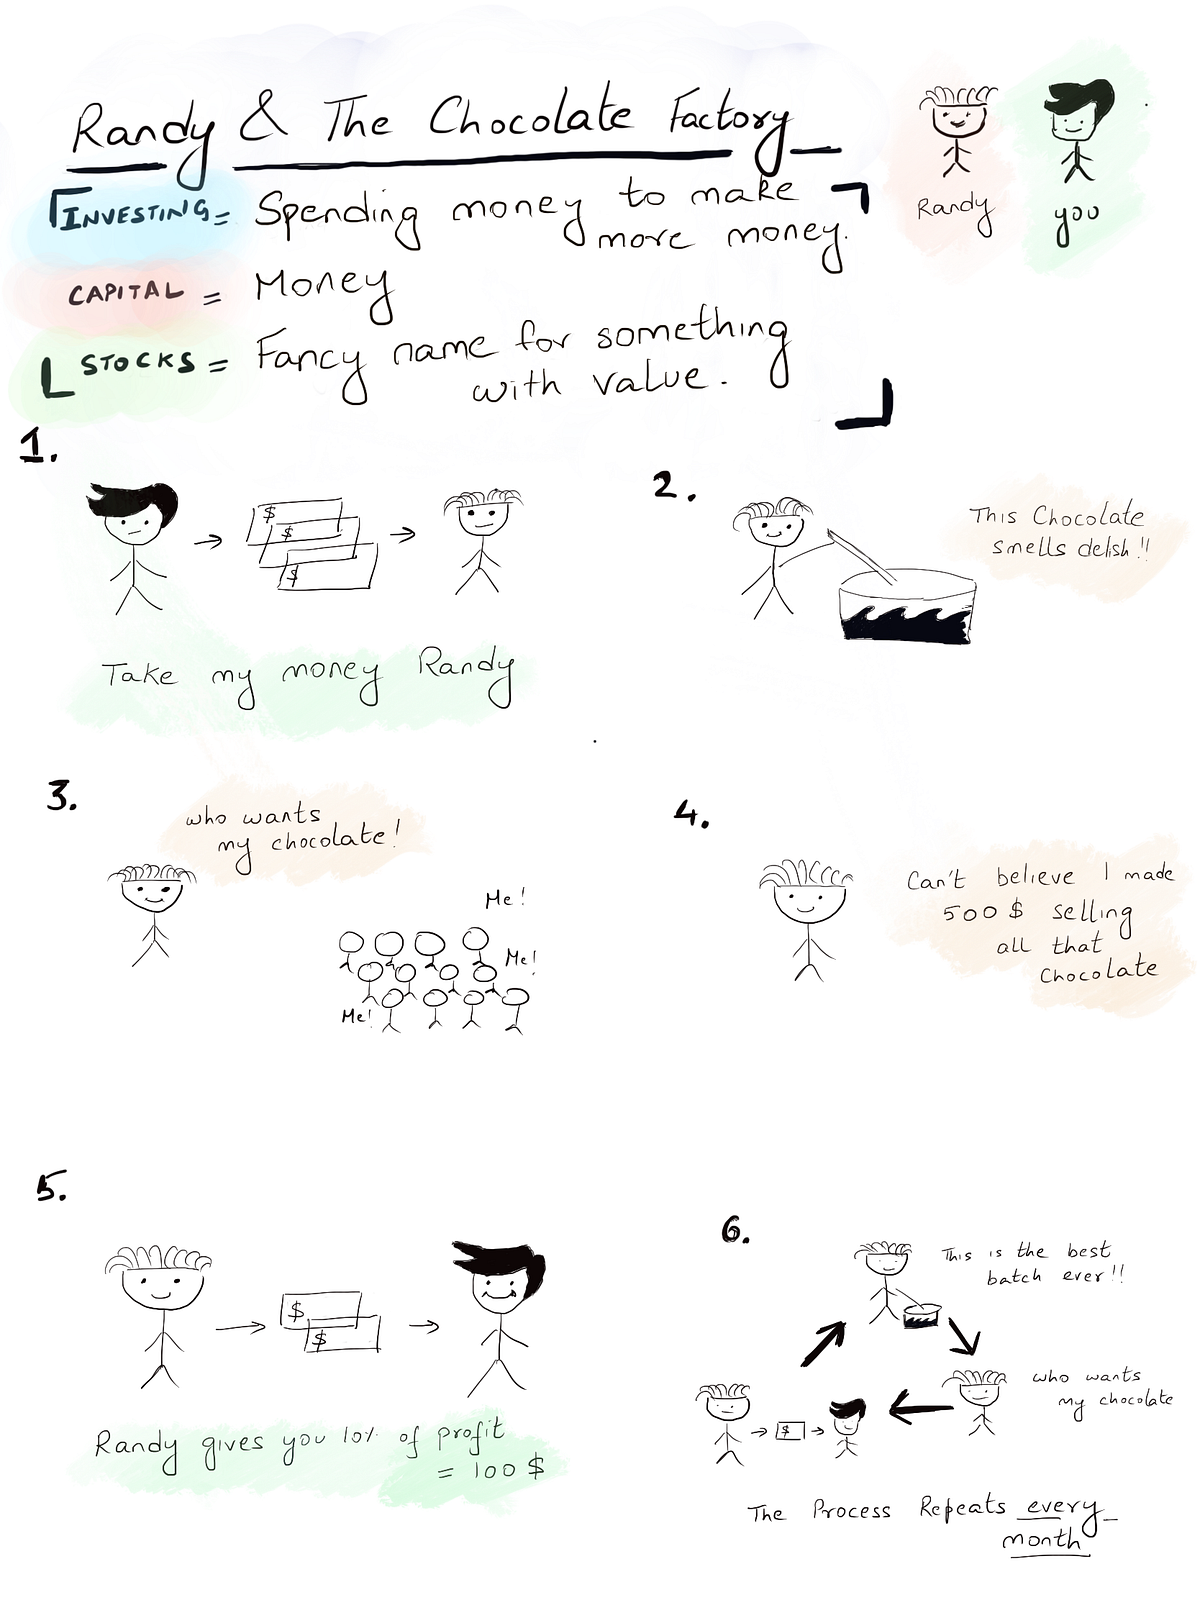 Randy & The Chocolate Factory
INVESTING = Spending money to make
more money.
CAPITAL = Money
STOCKS = Fancy name for something
with value.
Randy
you
1.
$
$
$
Take my money Randy
2.
This Chocolate
smells delish!!
3.
who wants
my chocolate!
Me!
Me!
Me!
4.
Can't believe I made
500$ selling
all that
Chocolate
5.
$
$
Randy gives you 10% of profit
= 100$
6.
This is the best
batch ever!!
who wants
my chocolate
$
The Process Repeats every
month